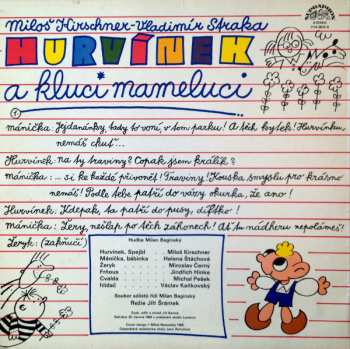 Miloš Kirschner-Vladimír Straka
HURVÍNEK
a kluci mameluci
SUPRAPHON
STEREO
mánička: Jejdanánky, tady to voní, v tom parku! A těch kytek! Hurvínku,
nemáš chuť...
Hurvínek: na ty traviny? Copak jsem králík?
mánička: ... si ke každé přivonět! Traviny! Kouska smyslu pro krásno
nemáš! Podle tebe patří do vázy okurka, že ano!
Hurvínek: Kdepak, ta patří do pusy, diftko!
mánička: Žery, nešlap po těch záhonech! Ať tu nádheru nepolámeš!
Žeryk: (zakňučí)
Hudba Milan Baginský
Hurvínek, Spejbl Miloš Kirschner
Mánička, bábinka Helena Štáchová
Žeryk Miroslav Černý
Fréous Jindřich Hinke
Cvalda Michal Pešek
hlídač Václav Kaňkovský
Soubor sólistů řídí Milan Baginský
Režie Jiří Šrámek